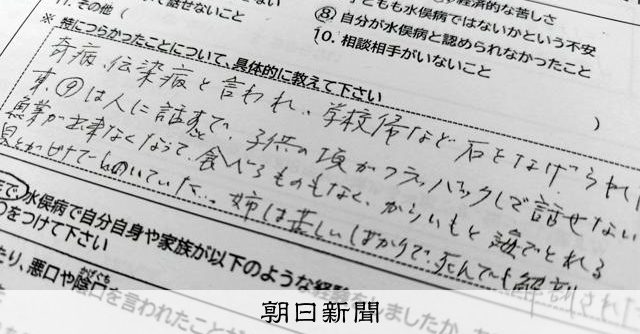 11. その他(
て話せないこと
どもも水俣病ではないかという不安
⑧. 自分が水俣病と認められなかったこと
10. 相談相手がいないこと
※ 特につらかったことについて、具体的に教えて下さい
奇病、伝染病と言われ、学校帰など石をなげられ
)
事、⑨は人に話すと、子供の頃がフラッバックして話せない
漁業が出来なくなって、食べるものもなく、からいもと海でとれる
貝とかビナで
いた。姉は苦しいばかりで、死んでも解剖され
で、水俣病で自分自身や家族が以下のような経験をしましたか。
をつけて下さい
たり、悪口や陰口を言われたことが
かげぐち
朝日新聞